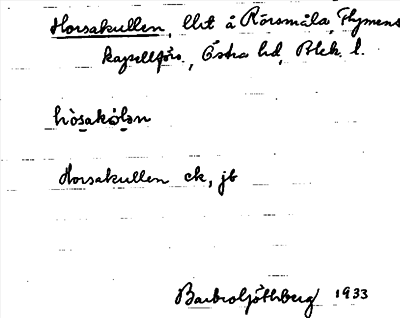 Horsakullen, lht å Rörsmåla, Flymens
kapellförs., Östra hd, Blek. l.
hòsakölen
Horsakullen ek, jb
Barbro Göthberg 1933